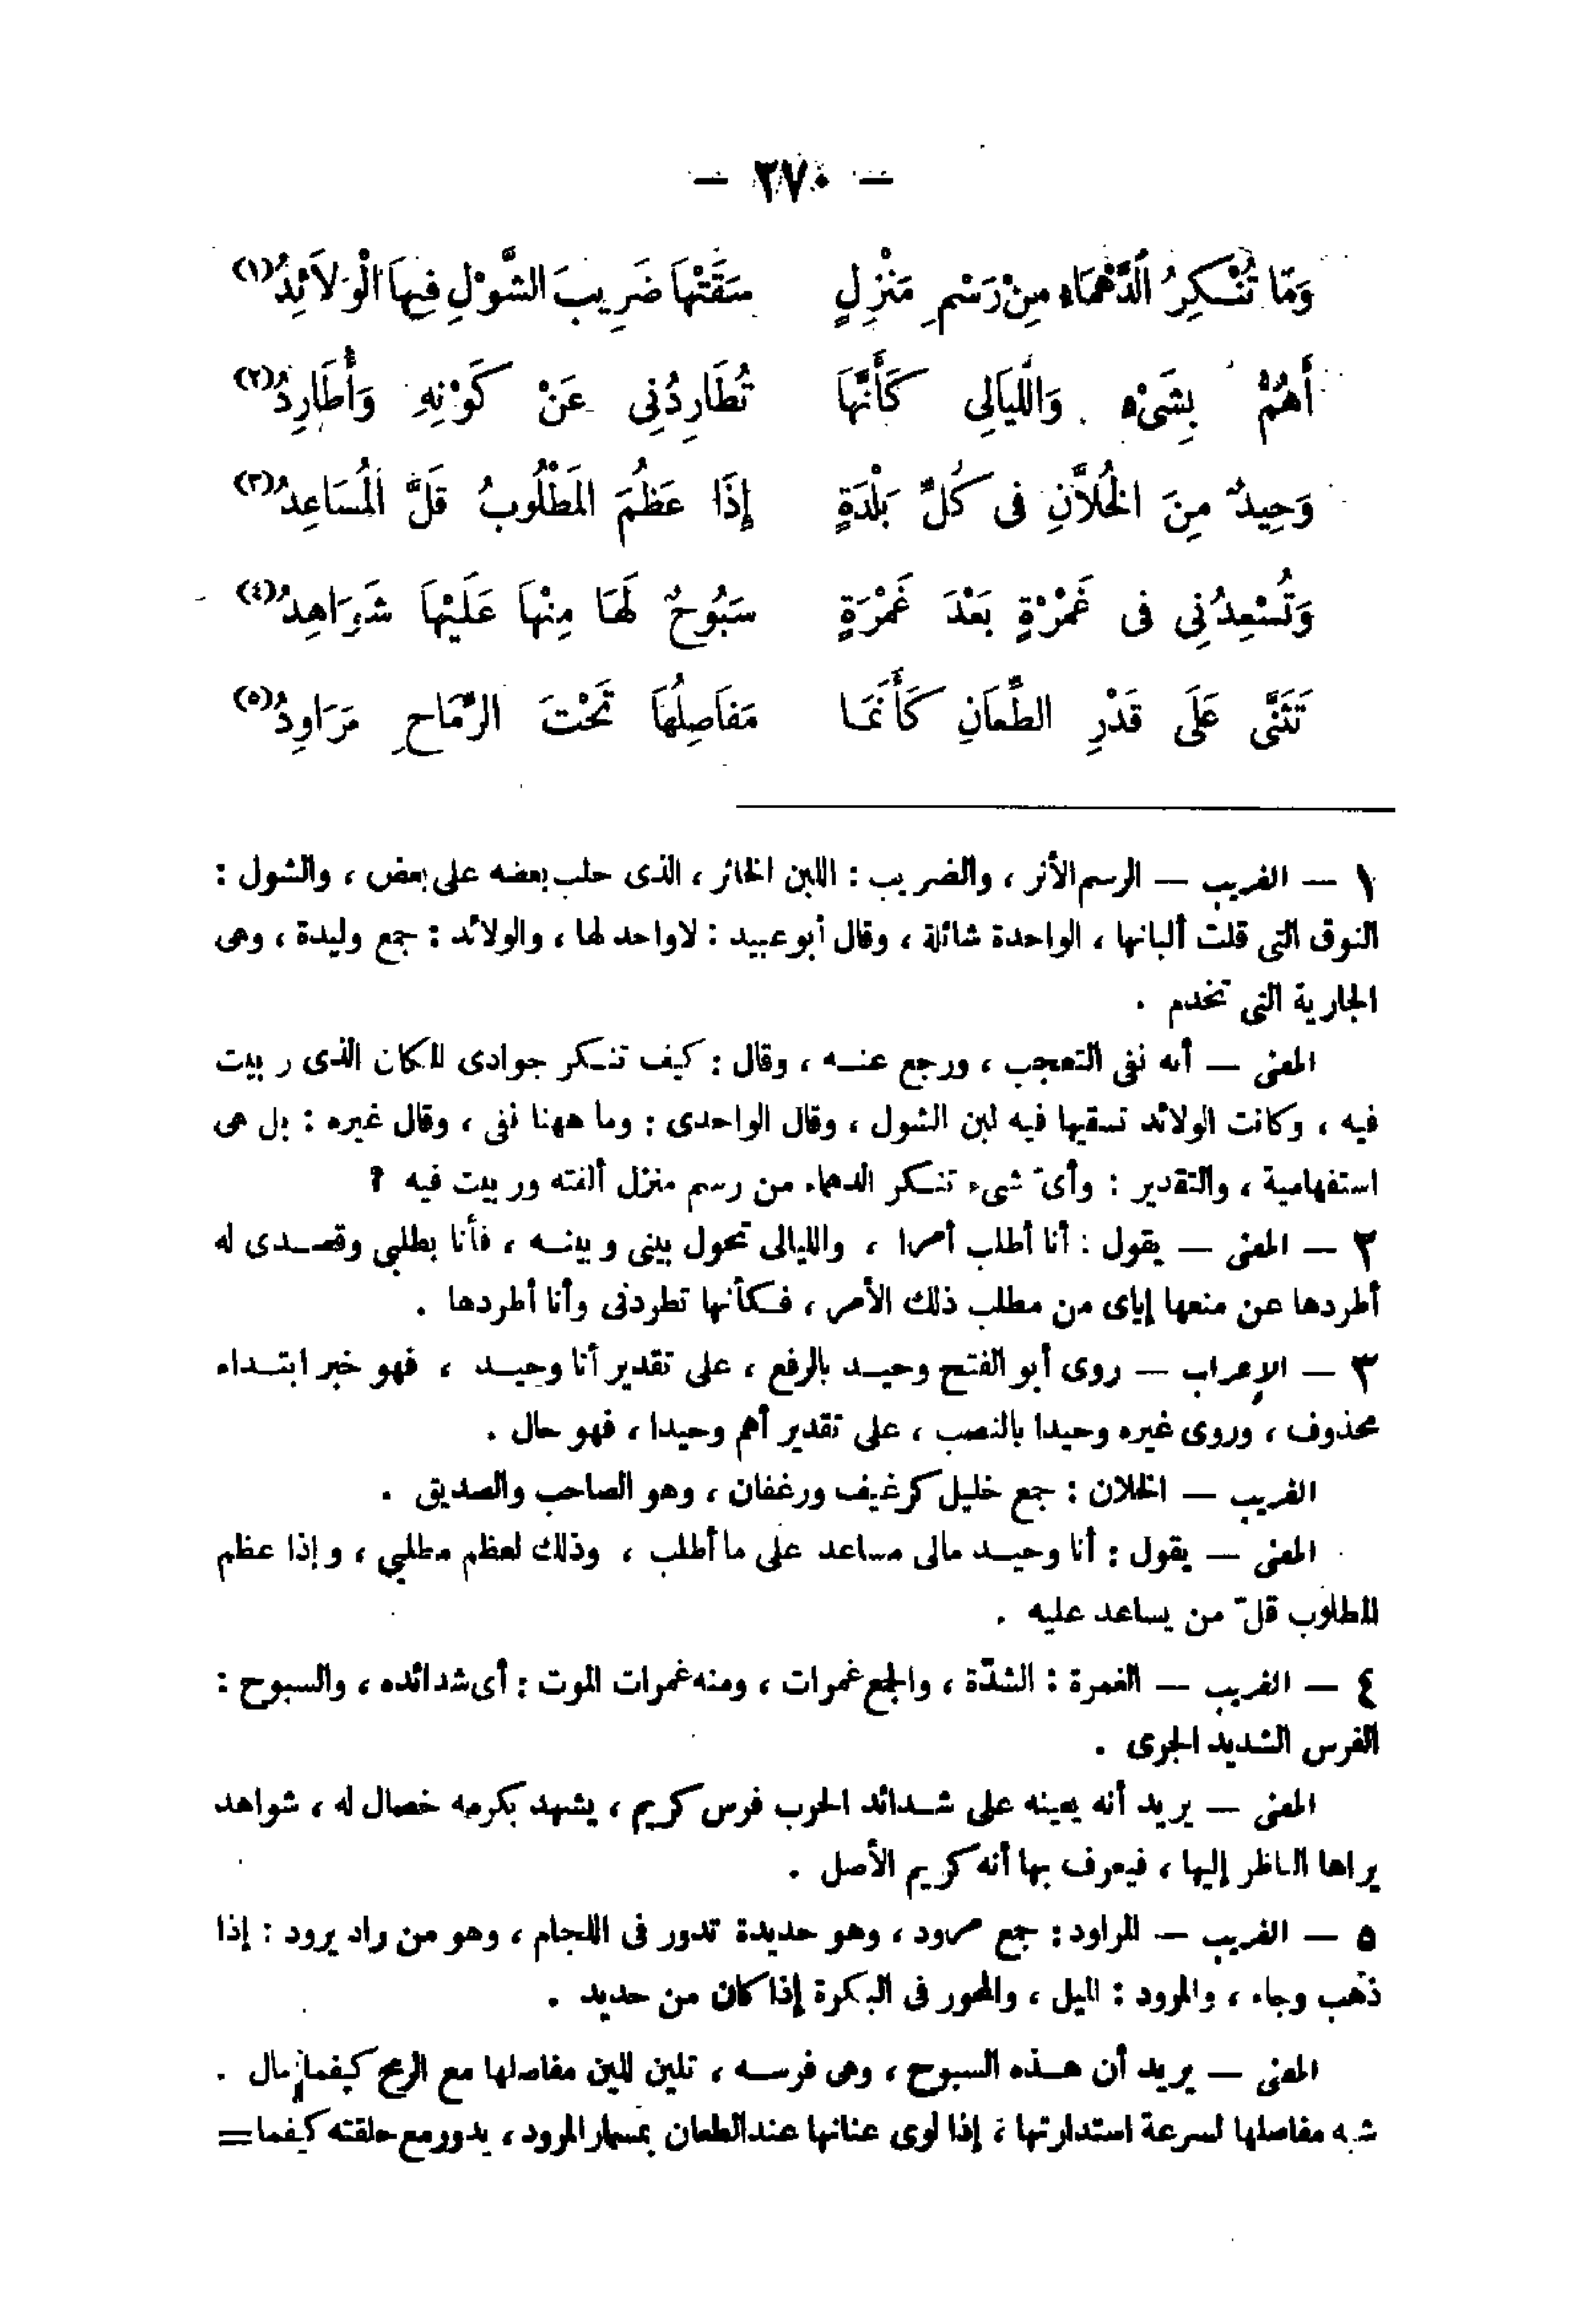 — ٢٧٠ —
وَمَا تُنْكِرُ الدَّهْمَاءِ مِنْ رَسْمِ مَنْزِلٍ سَقَتْهَا ضَرِيبَ الشَّوْلِ فِيهَا الْوَلاَئِدُ (١)
أَهُمُّ بِشَىْءٍ وَاللَّيَالِى كَأَنَّهَا تُطَارِدُنِى عَنْ كَوْنِهِ وَأُطَارِدُ (٢)
وَحِيدٌ مِنَ الْخُلاَّنِ فى كُلِّ بَلْدَةٍ إِذَا عَظُمَ المَطْلُوبُ قَلَّ المُسَاعِدُ (٣)
وَتُسْعِدُنِى فى غَمْرَةٍ بَعْدَ غَمْرَةٍ سَبُوحٌ لَهَا مِنْهَا عَلَيْهَا شَوَاهِدُ (٤)
تَثَنَّى عَلَى قَدْرِ الطِّعَانِ كَأَنَّمَا مَفَاصِلُهَا تَحْتَ الرِّمَاحِ مَرَاوِدُ (٥)
١ — الغريب — الرسم الأثر ، والضريب : اللبن الخاثر ، الذى حلب بعضه على بعض ، والشول :
النوق التى قلت ألبانها ، الواحدة شائلة ، وقال أبو عبيد : لا واحد لها ، والولائد : جمع وليدة ، وهى
الجارية التى تخدم .
المعنى — أنه نفى التعجب ، ورجع عنه ، وقال : كيف تنكر جوادى المكان الذى ربيت
فيه ، وكانت الولائد تسقيها فيه لبن الشول ، وقال الواحدى : وما ههنا نفى ، وقال غيره : بل هى
استفهامية ، والتقدير : وأىّ شىء تنكر الدهماء من رسم منزل ألفته وربيت فيه ؟
٢ — المعنى — يقول : أنا أطلب أمرا ، والليالى تحول بينى وبينه ، فأنا بطلبى وقصدى له
أطردها عن منعها إياى من مطلب ذلك الأمر ، فكأنها تطردنى وأنا أطردها .
٣ — الإعراب — روى أبو الفتح وحيد بالرفع ، على تقدير أنا وحيد ، فهو خبر ابتداء
محذوف ، وروى غيره وحيدا بالنصب ، على تقدير أهم وحيدا ، فهو حال .
الغريب — الخلان : جمع خليل كرغيف ورغفان ، وهو الصاحب والصديق .
المعنى — يقول : أنا وحيد مالى مساعد على ما أطلب ، وذلك لعظم مطلبى ، وإذا عظم
المطلوب قلّ من يساعد عليه .
٤ — الغريب — الغمرة : الشدّة ، والجمع غمرات ، ومنه غمرات الموت : أى شدائده ، والسبوح :
الفرس الشديد الجرى .
المعنى — يريد أنه يعينه على شدائد الحرب فرس كريم ، يشهد بكرمه خصال له ، شواهد
يراها الناظر إليها ، فيعرف بها أنه كريم الأصل .
٥ — الغريب — المراود : جمع مرود ، وهو حديدة تدور فى اللجام ، وهو من راد يرود : إذا
ذهب وجاء ، والمرود : الميل ، والمحور فى البكرة إذا كان من حديد .
المعنى — يريد أن هذه السبوح ، وهى فرسه ، تلين للين مفاصلها مع الرمح كيفما مال .
شبه مفاصلها لسرعة استدارتها ، إذا لوى عنانها عند الطعان بمسمار المرود ، يدور مع حلقته كيفما =